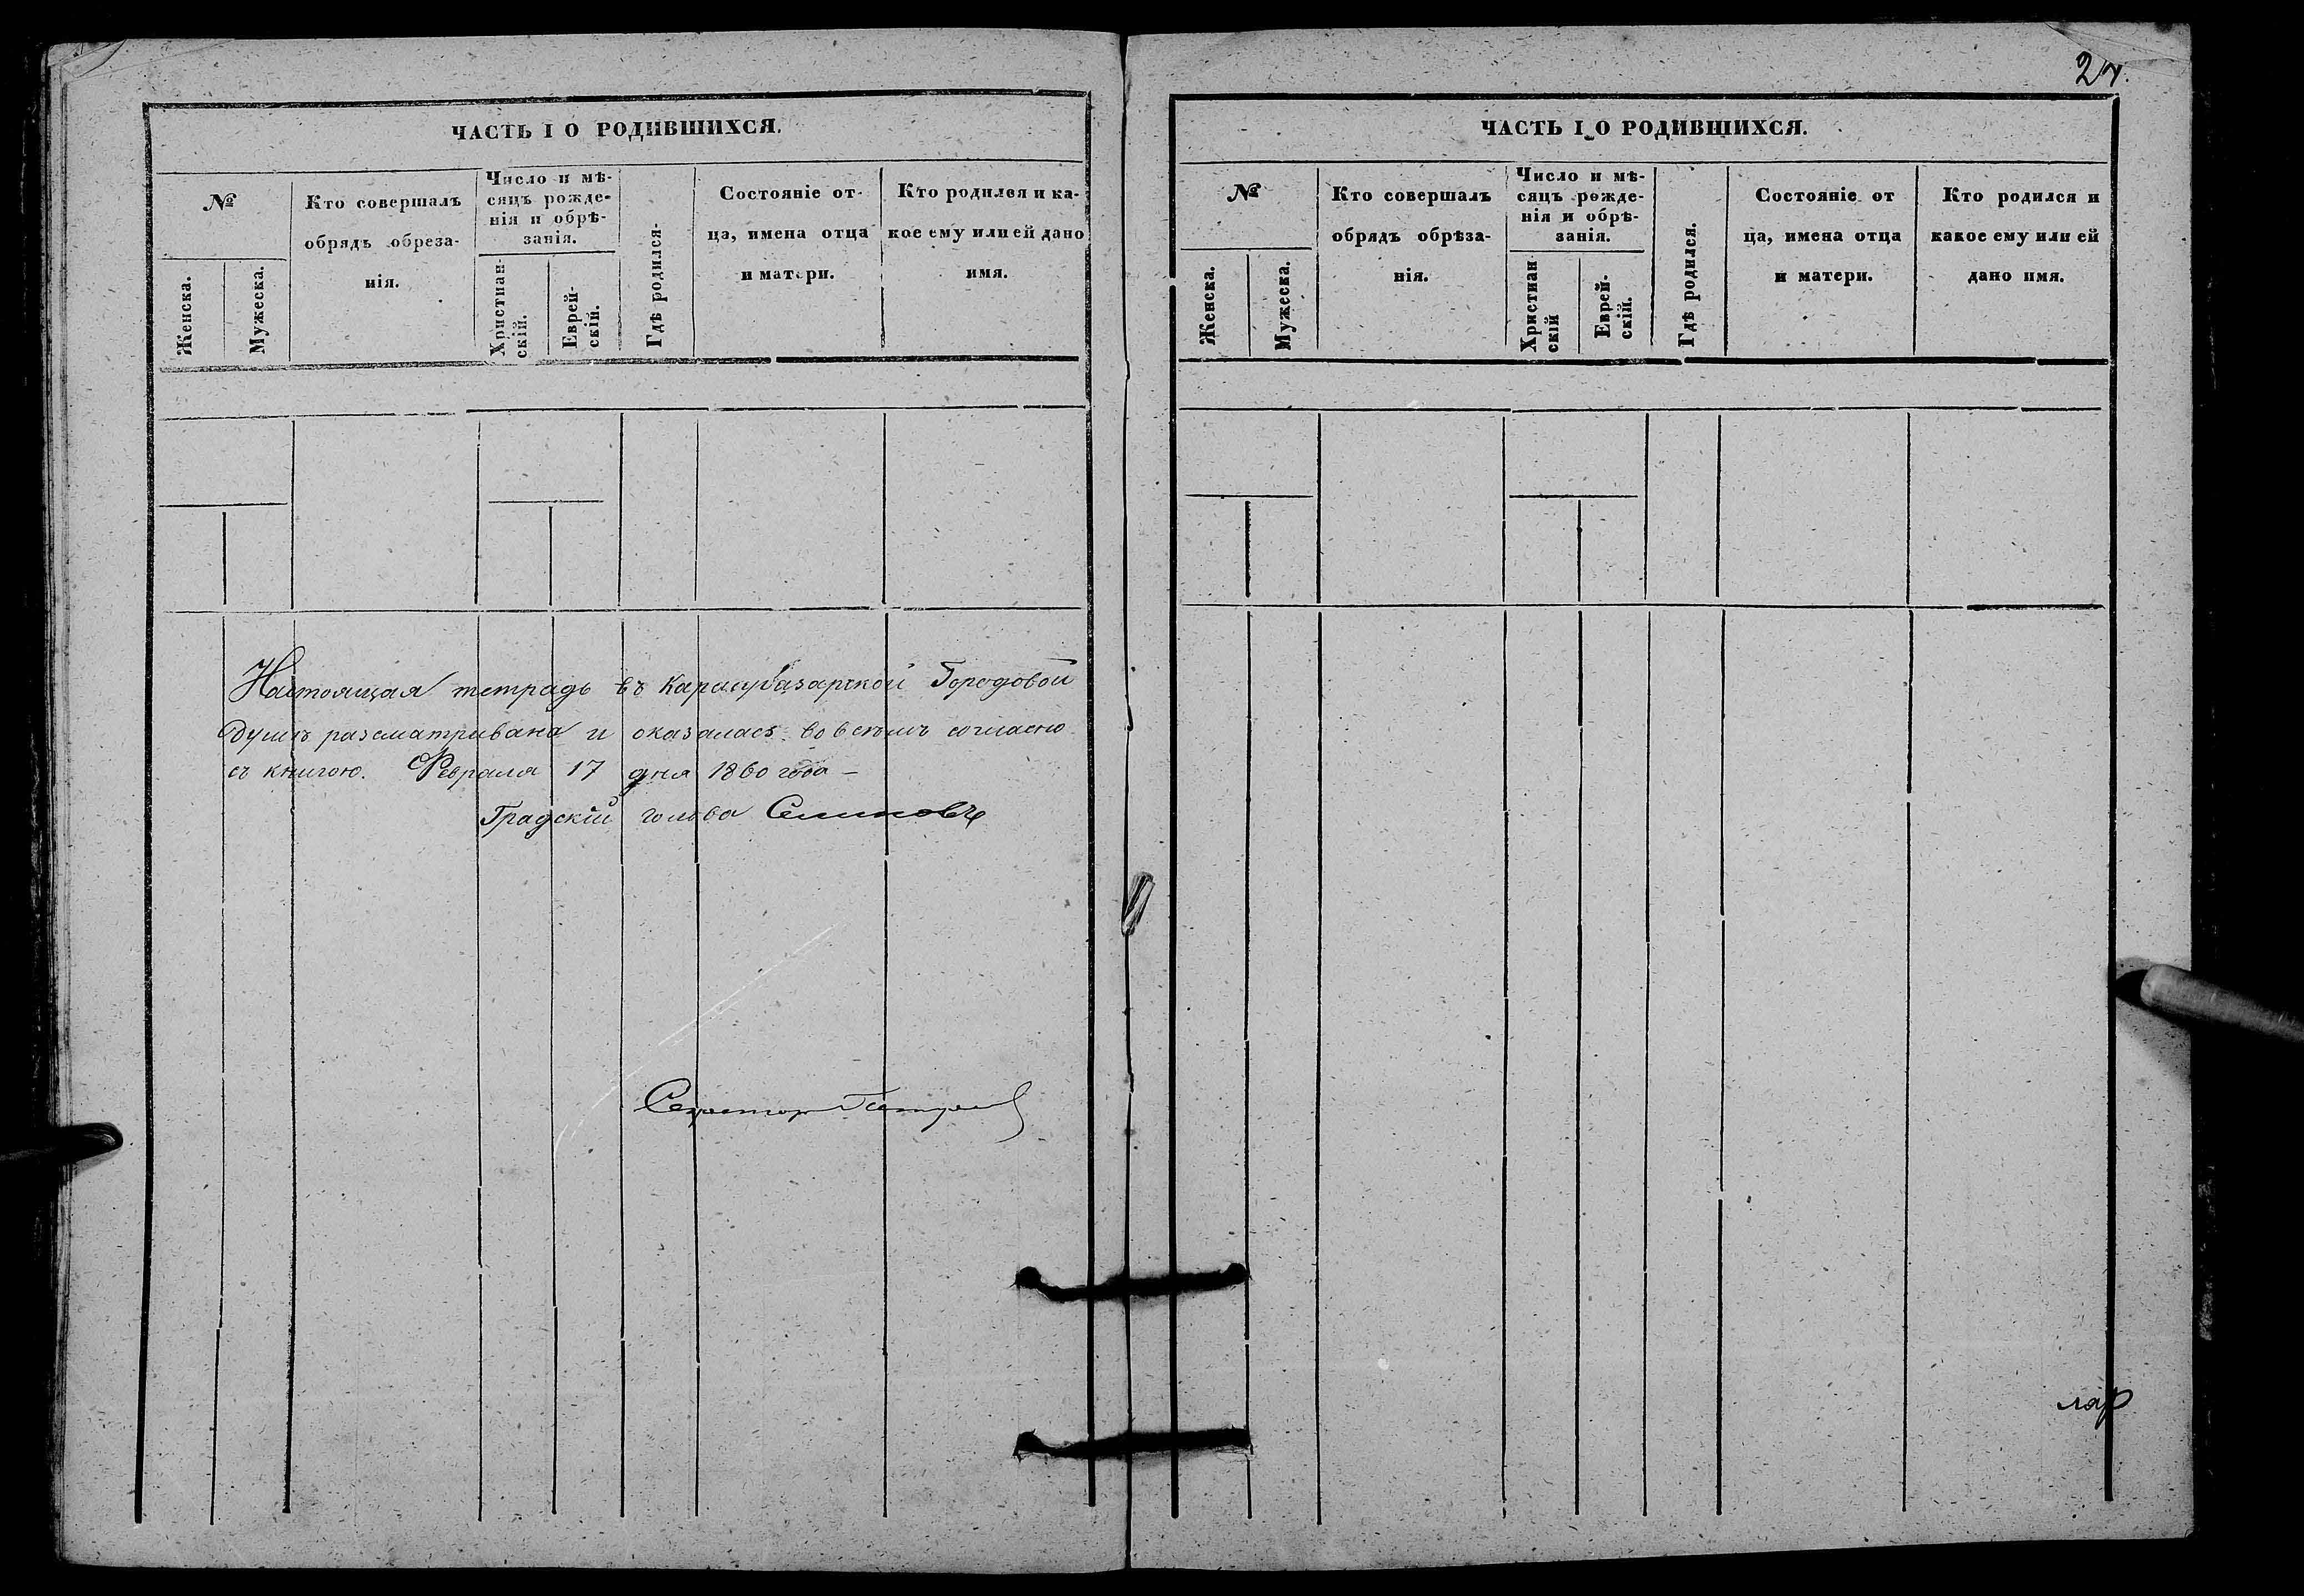 ЧАСТЬ I О РОДИВШИХСЯ.
№
Женска.
Мужеска.
Кто совершалъ
обрядъ обреза-
нія.
Число и мѣ-
сяцъ рожде-
нія и обрѣ-
занія.
Христиан-
скій.
Еврей-
скій.
Гдѣ родился-
Состояніе от-
ца, имена отца
и матери.
Кто родился и ка-
кое ему или ей дано
имя.
Настоящая тетрадь въ Карасубазарской Городовой
Думѣ разсматривана и оказалась во всѣмъ согласно
съ книгою. Февраля 17 дня 1860 года –
Градскій голова
Секретарь
27.
ЧАСТЬ I О РОДИВШИХСЯ.
№
Женска.
Мужеска.
Кто совершалъ
обрядъ обрѣза-
нія.
Число и мѣ-
сяцъ рожде-
нія и обрѣ-
занія.
Христиан
скій
Еврей-
скій.
Гдѣ родился.
Состояніе от
ца, имена отца
и матери.
Кто родился и
какое ему или ей
дано имя.
лар